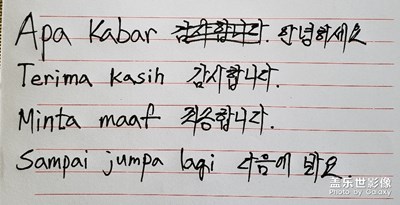 Apa Kabar 감사합니다. 안녕하세요
Terima kasih 감사합니다.
Minta maaf 죄송합니다.
Sampai jumpa lagi 다음에 봐요.
盖乐世影像
Photo by Galaxy